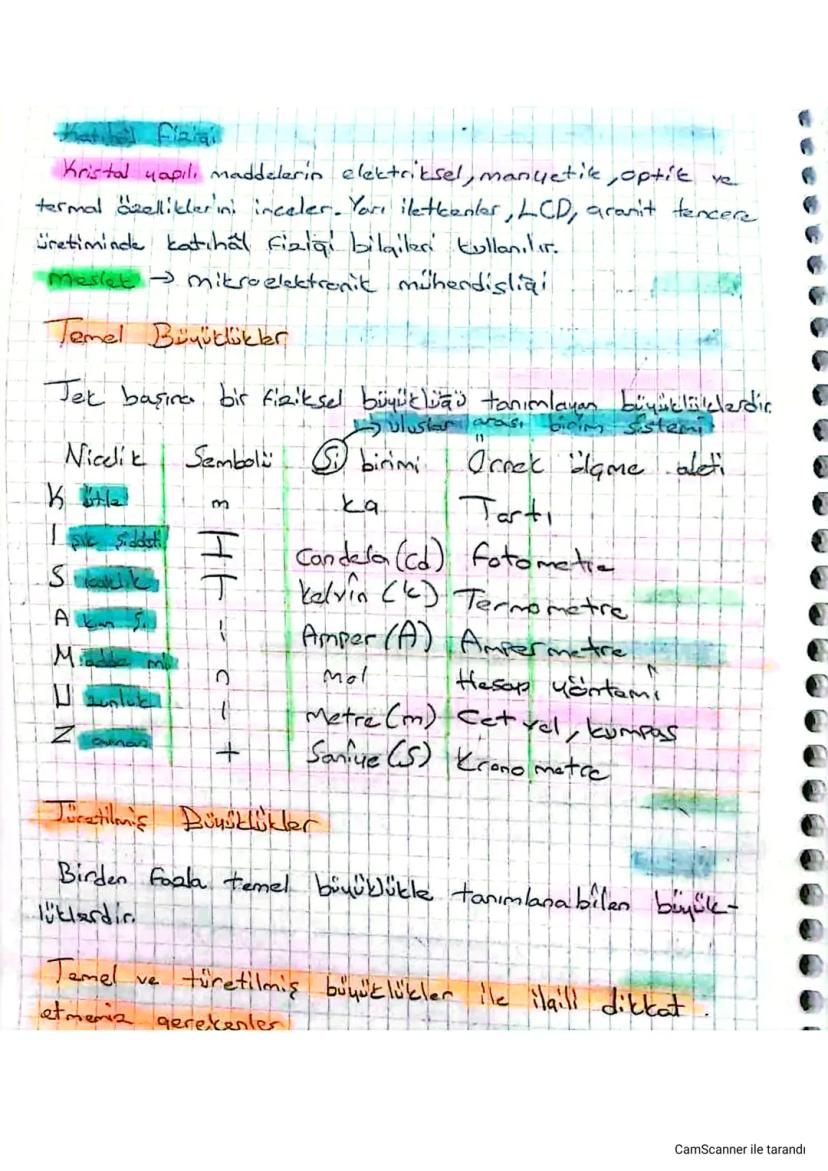 Katıhâl fiziği
Kristal yapılı maddelerin elektriksel, manyetik, optik ve
termal özelliklerini inceler. Yarı iletkenler, LCD, granit tencere
üretiminde katıhâl fiziği bilgileri kullanılır.
Meslek → mikroelektronik mühendisliği
Temel Büyüklükler
Tek başına bir fiziksel büyüklüğü tanımlayan büyüklüklerdir.
→ Uluslar arası birim sistemi
Nicelik Sembolü SI birimi Örnek ölçme aleti
Kütle m kg Tartı
Işık şiddeti I Candela (cd) Fotometre
Sıcaklık T Kelvin (K) Termometre
Akım ş. i Amper (A) Ampermetre
Madde mik n mol Hesap yöntemi
Uzunluk l Metre (m) Cetvel, kumpas
Zaman t Saniye (S) Kronometre
Türetilmiş Büyüklükler
Birden fazla temel büyüklükle tanımlanabilen büyük-
lüklerdir.
Temel ve türetilmiş büyüklükler ile ilgili dikkat
etmemiz gerekenler
CamScanner ile tarandı